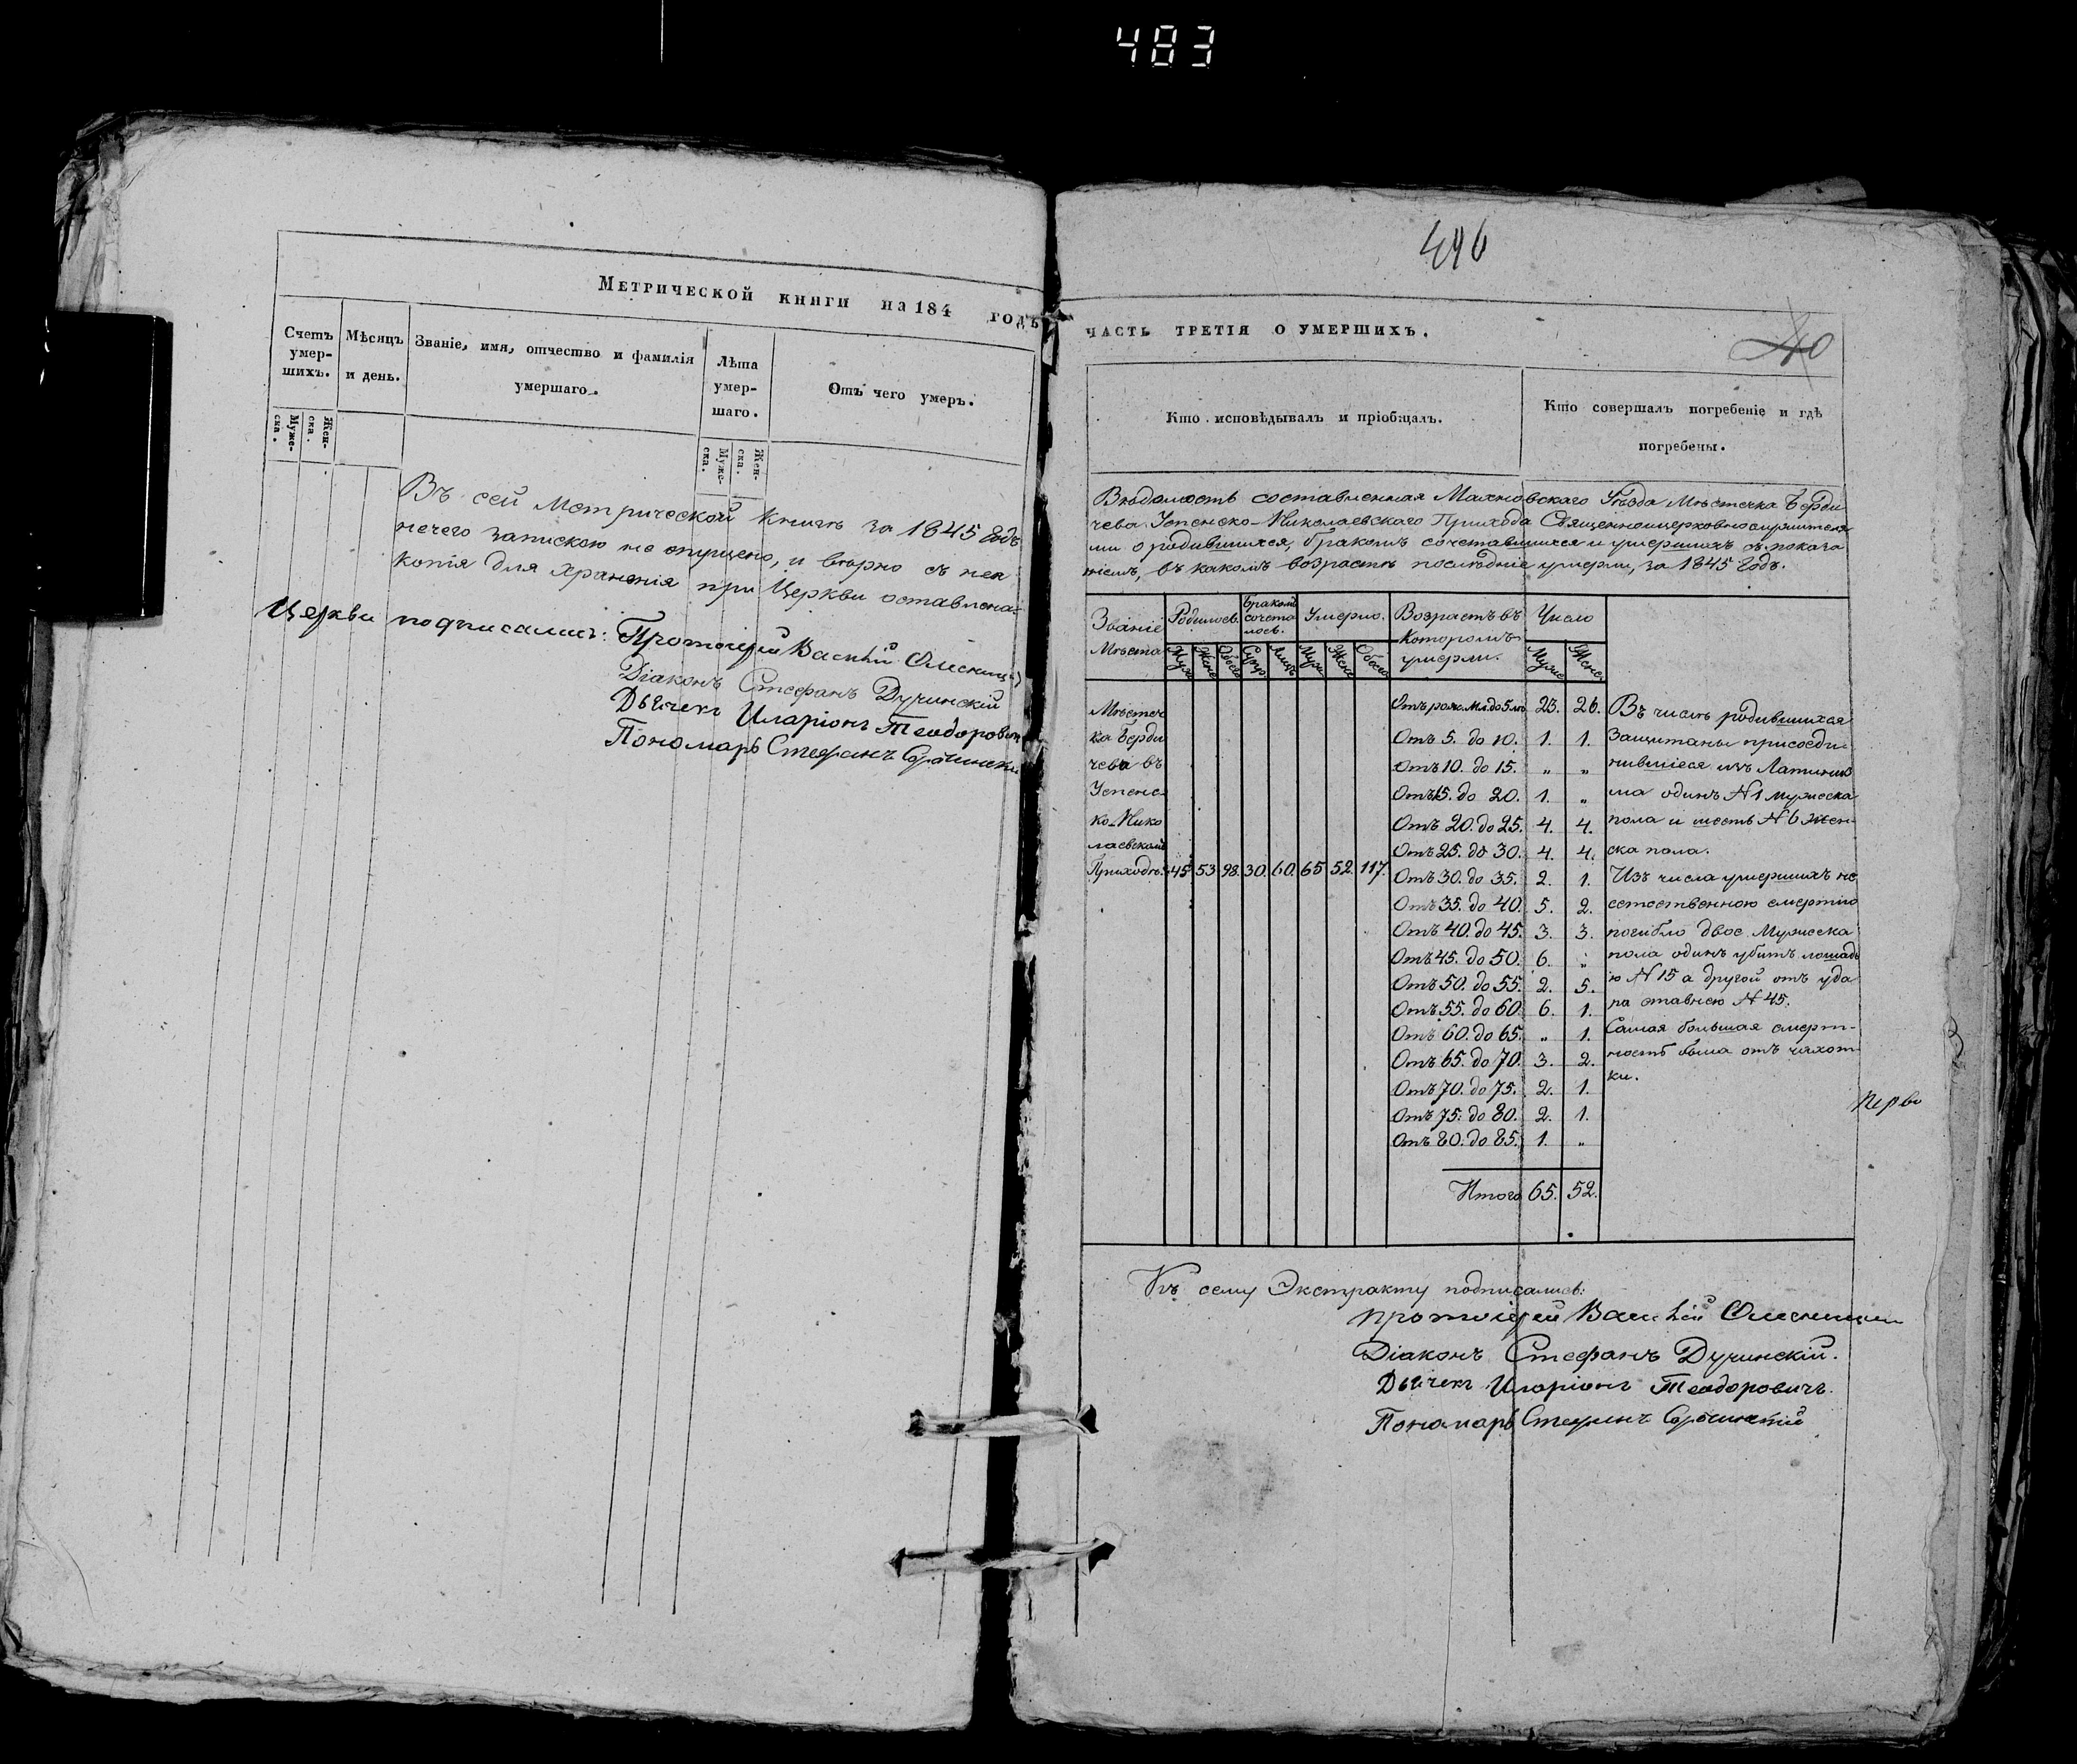 483
496
Метрической книги на 184 годъ
Счетъ умер-шихъ.
Муже-ска.
Жен-ска.
Мѣсяцъ и день.
Званіе, имя, отчество и фамилія умершаго.
Лѣта умер-шаго.
Муже-ска.
Жен-ска.
Отъ чего умеръ.
Въ сей Метрической книгѣ за 1845 годъ
нечего запискою не опущено, и вѣрно съ нея
копія для храненія при Церкви оставлена.
Церкви подписались: Протоіерей Василій
Діаконъ Стефанъ Дучинскій
Дьячекъ Иларіонъ Теодоровичъ
Пономарь Стефанъ
часть третія о умершихъ.
40
Кто исповѣдывалъ и пріобщалъ.
Кто совершалъ погребеніе и гдѣ
погребены.
Вѣдомость составленная Махновскаго Уѣзда Мѣстечка Берди
чева Успенско-Николаевскаго Прихода Священноцерковнослужителя
ми о родившихся, бракомъ сочетавшихся и умершихъ съ показа
ніемъ, въ какомъ возрастѣ послѣдніе умерли, за 1845 годъ.
Званіе Мѣста
Родилось.
Бракомъ сочета лось.
Умерло.
Возрастъ въ которомъ умерли.
Число
Муж Жен Обоего Супр Лицъ Муж Жен Обоего Муж Жен.
Мѣстеч
ка Берди
чева въ
Успенс-
ко-Нико
лаевскомъ
Приходѣ. 45 53 98. 30. 60. 65 52. 117.
Отъ рож. мл. до 5 лѣ 23. 26.
Отъ 5. до 10. 1. 1.
Отъ 10. до 15. „ „
Отъ 15. до 20. 1. „
Отъ 20. до 25. 4. 4.
Отъ 25. до 30. 4. 4.
Отъ 30. до 35. 2. 1.
Отъ 35. до 40. 5. 2.
Отъ 40. до 45. 3. 3.
Отъ 45. до 50. 6. „
Отъ 50. до 55. 2. 5.
Отъ 55. до 60. 6. 1.
Отъ 60. до 65. „ 1.
Отъ 65. до 70. 3. 2.
Отъ 70. до 75. 2. 1.
Отъ 75. до 80. 2. 1.
Отъ 80. до 85. 1. „
Итого 65. 52.
Въ числѣ родившихся
защитаны присоеди-
нившіеся изъ Латиниз
ма одинъ N 1 мужеска
пола и шесть N 6 жен-
ска пола.
Изъ числа умершихъ не
естественною смертію
погибло двое Мужеска
пола одинъ убитъ лошадь
ю N 15 а другой отъ уда
ра ставнею N 45.
Самая большая смерт-
ность была отъ чахот-
ки.
Къ сему Экстракту подписались:
Протоіерей Василій
Діаконъ Стефанъ Дучинскій.
Дьячекъ Иларіонъ Теодоровичъ.
Пономарь Стефанъ